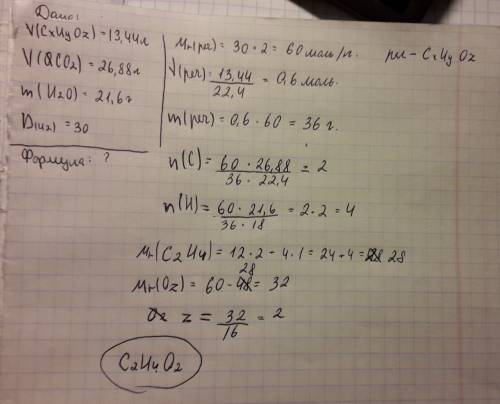 Дано:
V(CxHyOz) = 13,44 л
V(CO2) = 26,88 л
m(H2O) = 21,6 г
D(H2) = 30
Формула: ?
Mr(рег) = 30 · 2 = 60 моль/г. рег - CxHyOz
V(рег) = 13,44 / 22,4 = 0,6 моль.
m(рег) = 0,6 · 60 = 36 г.
n(C) = 60 · 26,88 / 36 · 22,4 = 2
n(H) = 60 · 21,6 / 36 · 18 = 2 · 2 = 4
Mr(C2H4) = 12 · 2 - 4 · 1 = 24 + 4 = 28
Mr(Oz) = 60 - 28 = 32
z = 32 / 16 = 2
C2H4O2